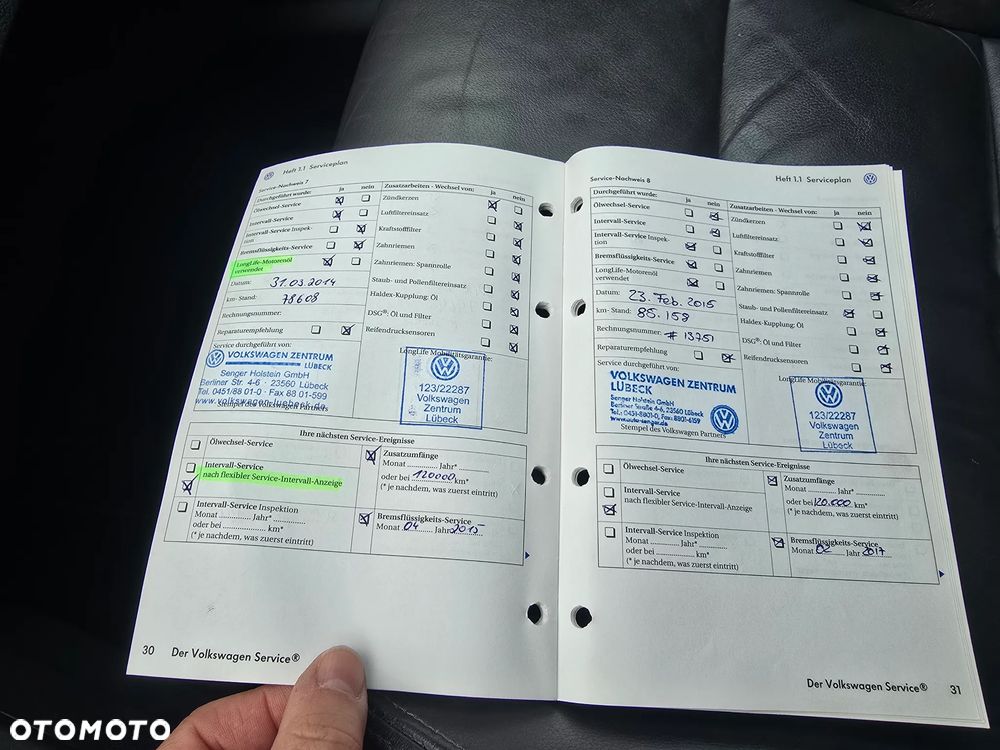 Heft 1.1 Serviceplan
Service-Nachweis 7
Durchgeführt wurde: ja nein
Ölwechsel-Service
Intervall-Service
Intervall-Service Inspek-
tion
Bremsflüssigkeits-Service
LongLife-Motorenöl
verwendet
Datum: 31.03.2014
km-Stand: 78608
Rechnungsnummer:
Reparaturempfehlung
Service durchgeführt von:
VOLKSWAGEN ZENTRUM
LÜBECK
Senger Holstein GmbH
Berliner Str. 4-6 · 23560 Lübeck
Tel. 0451/88 01-0 · Fax 88 01-599
www.volkswagen-luebeck.de
Stempel des Volkswagen Partners
Zusatzarbeiten - Wechsel von: ja nein
Zündkerzen
Luftfiltereinsatz
Kraftstofffilter
Zahnriemen
Zahnriemen: Spannrolle
Staub- und Pollenfiltereinsatz
Haldex-Kupplung: Öl
DSG®: Öl und Filter
Reifendrucksensoren
LongLife Mobilitätsgarantie:
123/22287
Volkswagen
Zentrum
Lübeck
Ihre nächsten Service-Ereignisse
Ölwechsel-Service
Intervall-Service
nach flexibler Service-Intervall-Anzeige
Intervall-Service Inspektion
Monat .............. Jahr* ..............
oder bei .................. km*
(* je nachdem, was zuerst eintritt)
Zusatzumfänge
Monat .............. Jahr* ..............
oder bei 120000 km*
(* je nachdem, was zuerst eintritt)
Bremsflüssigkeits-Service
Monat 04 Jahr 2015
30 Der Volkswagen Service®
Service-Nachweis 8
Heft 1.1 Serviceplan
Durchgeführt wurde: ja nein
Ölwechsel-Service
Intervall-Service
Intervall-Service Inspek-
tion
Bremsflüssigkeits-Service
LongLife-Motorenöl
verwendet
Datum: 23. Feb. 2015
km-Stand: 85.158
Rechnungsnummer: # 13751
Reparaturempfehlung
Service durchgeführt von:
VOLKSWAGEN ZENTRUM
LÜBECK
Senger Holstein GmbH
Berliner Straße 4-6, 23560 Lübeck
Tel.: 0451-8801-0, Fax: 8801-6159
www.auto-senger.de
Stempel des Volkswagen Partners
Zusatzarbeiten - Wechsel von: ja nein
Zündkerzen
Luftfiltereinsatz
Kraftstofffilter
Zahnriemen
Zahnriemen: Spannrolle
Staub- und Pollenfiltereinsatz
Haldex-Kupplung: Öl
DSG®: Öl und Filter
Reifendrucksensoren
LongLife Mobilitätsgarantie:
123/22287
Volkswagen
Zentrum
Lübeck
Ihre nächsten Service-Ereignisse
Ölwechsel-Service
Intervall-Service
nach flexibler Service-Intervall-Anzeige
Intervall-Service Inspektion
Monat .............. Jahr* ..............
oder bei .................. km*
(* je nachdem, was zuerst eintritt)
Zusatzumfänge
Monat .............. Jahr* ..............
oder bei 120.000 km*
(* je nachdem, was zuerst eintritt)
Bremsflüssigkeits-Service
Monat 02 Jahr 2017
Der Volkswagen Service® 31
OTOMOTO